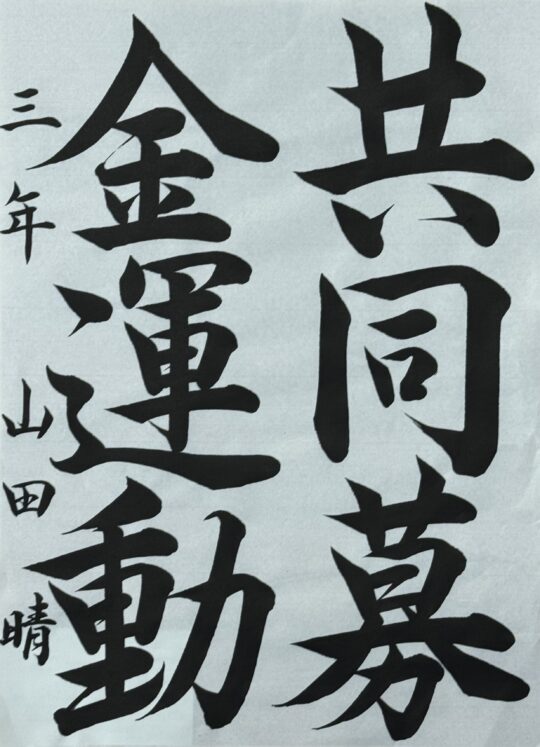 共同募
金運動
三年 山田 晴